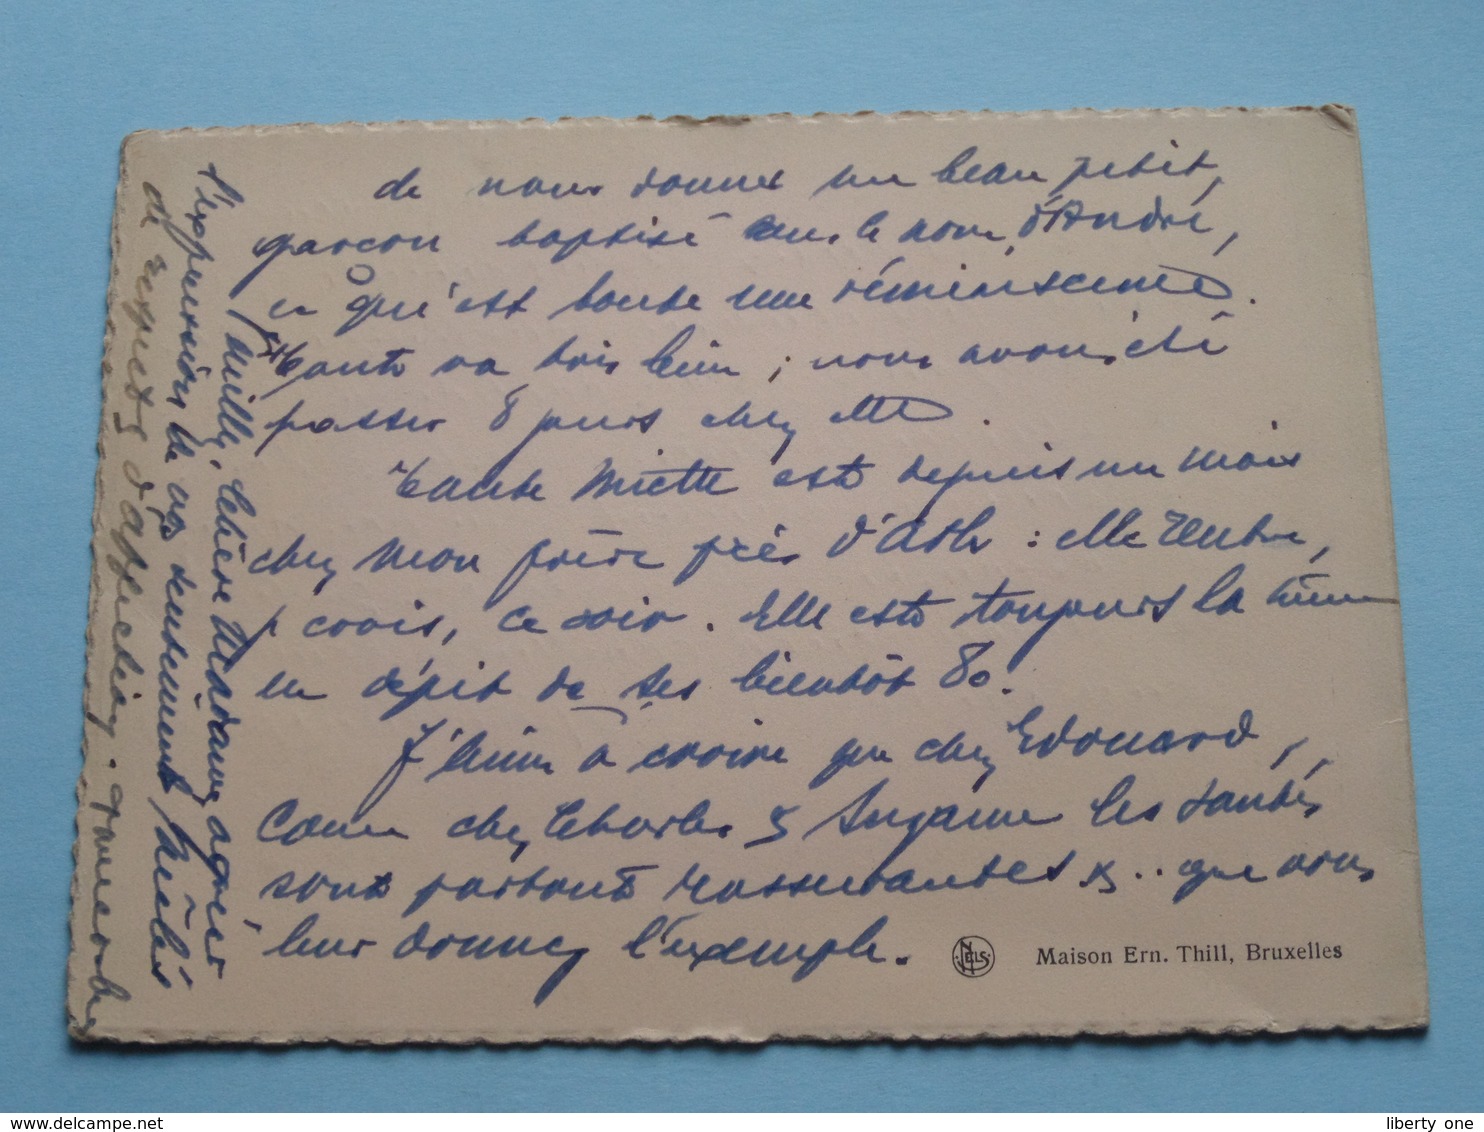 de nous donner un beau petit
garçon baptisé sous le nom d'André,
ce qui est toute une réminiscence.
Tout va très bien ; nous avons été
passer 8 jours chez elle.
Tante Miette est depuis un mois
chez mon frère près d'Ath : elle rentre,
je crois, ce soir. Elle est toujours la même
en dépit de ses bientôt 80.
J'aime à croire que chez Edouard,
comme chez Charles & Suzanne les santés
sont partout rassurantes &.. que vous
leur donnez l'exemple.
NELS
Maison Ern. Thill, Bruxelles
Milly, chère Madame, agréer
l'expression de nos sentiments mêlés
de respects d'affection.
delcampe.net
liberty one